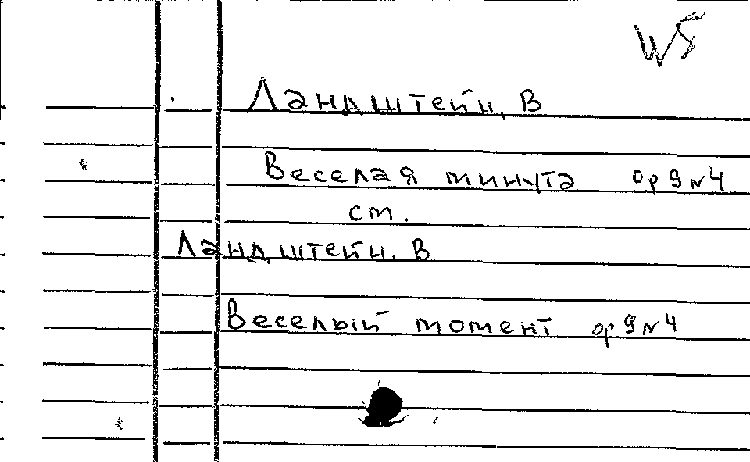 W5
Ландштейн, В
Веселая минута op 9 N 4
см.
Ландштейн. В
Веселый момент op 9 N 4